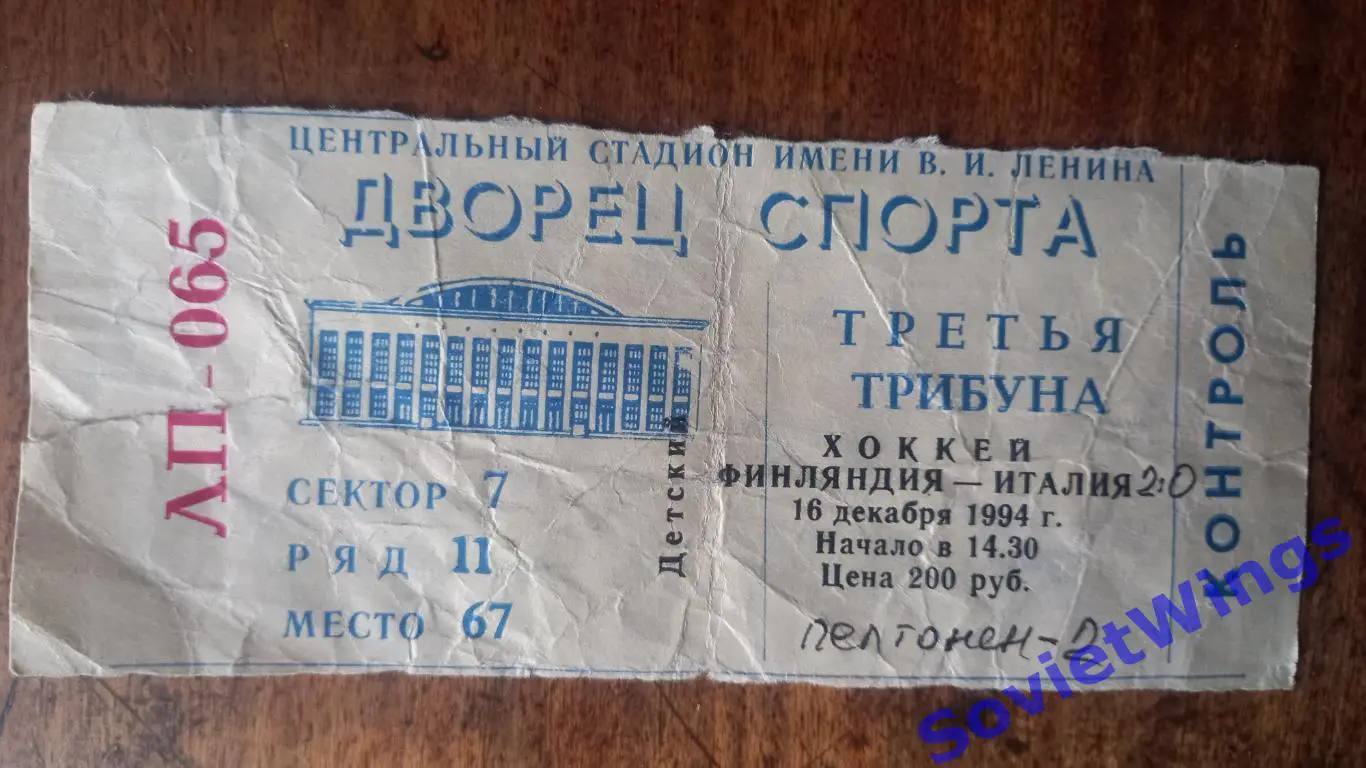 ЦЕНТРАЛЬНЫЙ СТАДИОН ИМЕНИ В. И. ЛЕНИНА
ДВОРЕЦ СПОРТА
ЛП-065
ТРЕТЬЯ
ТРИБУНА
ХОККЕЙ
ФИНЛЯНДИЯ — ИТАЛИЯ 2:0
16 декабря 1994 г.
Начало в 14.30
Цена 200 руб.
пелтонен-2
СЕКТОР 7
РЯД 11
МЕСТО 67
Детский
КОНТРОЛЬ
SovietWings